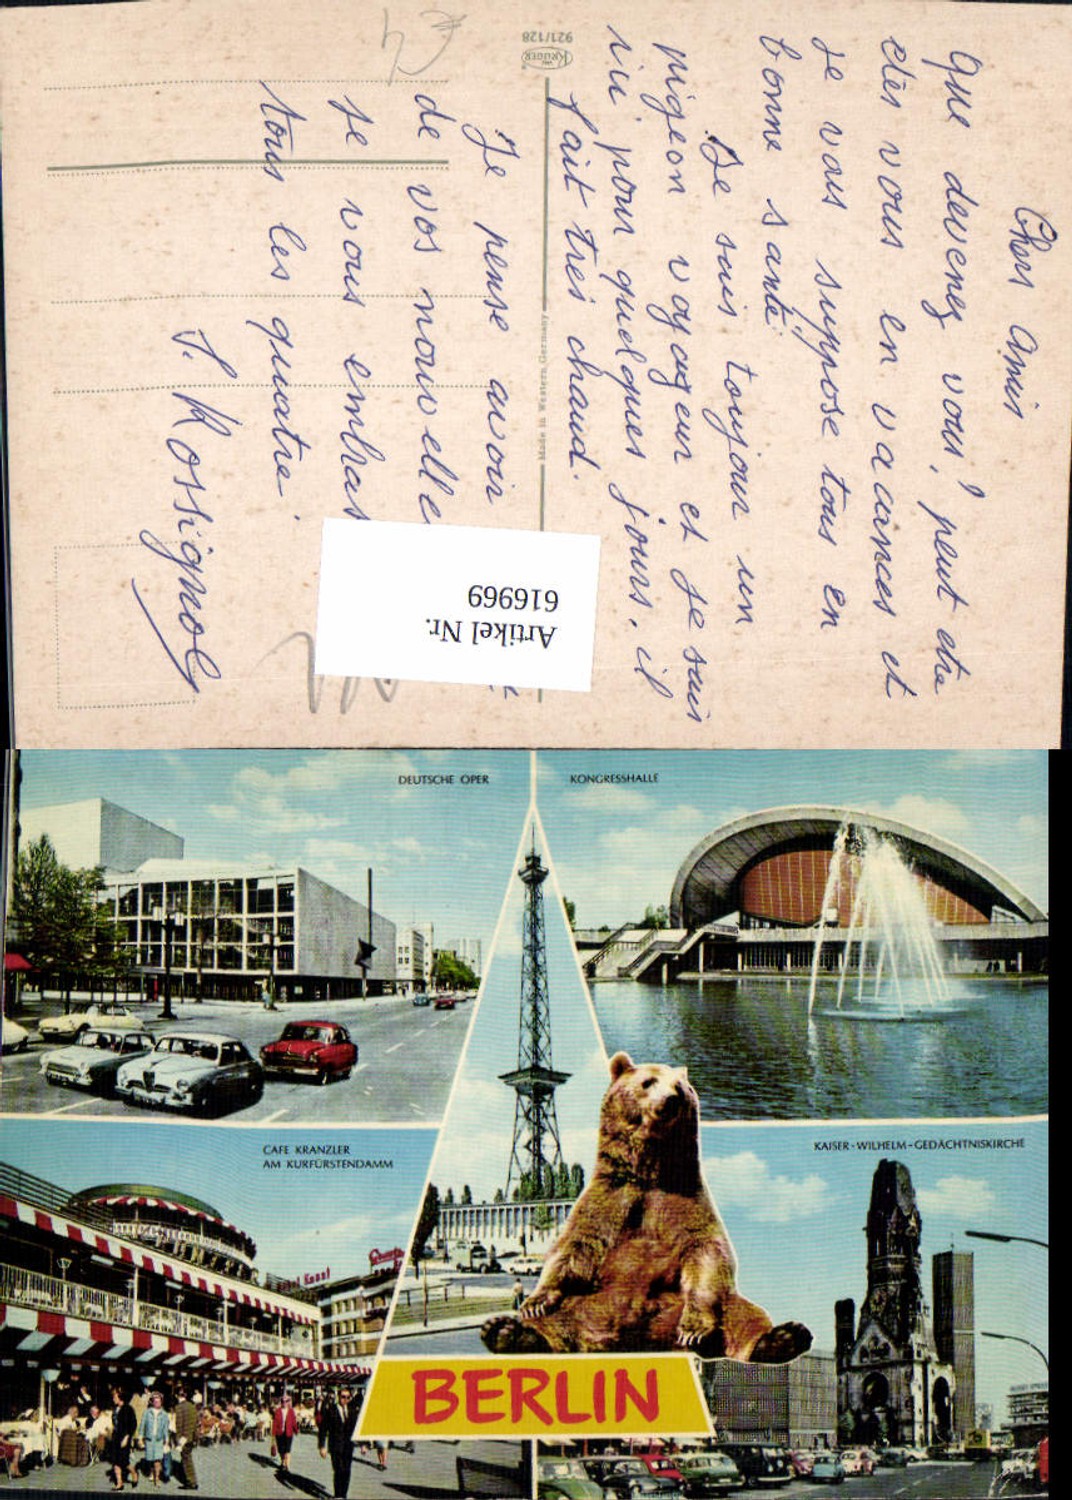 Chers amis
que devenez vous, peut etre
etes vous en vacances et
je vous suppose tous en
bonne santé
Je suis toujour un
pigeon voyageur et je suis
ici pour quelques jours, il
fait tres chaud.
Je pense avoir
de vos nouvelle
je vous embras
tous les quatre.
J. Rossignol
921/128
KRÜGER
Made in Western Germany
Artikel Nr.
616969
DEUTSCHE OPER
KONGRESSHALLE
CAFE KRANZLER
AM KURFÜRSTENDAMM
KAISER-WILHELM-GEDÄCHTNISKIRCHE
BERLIN